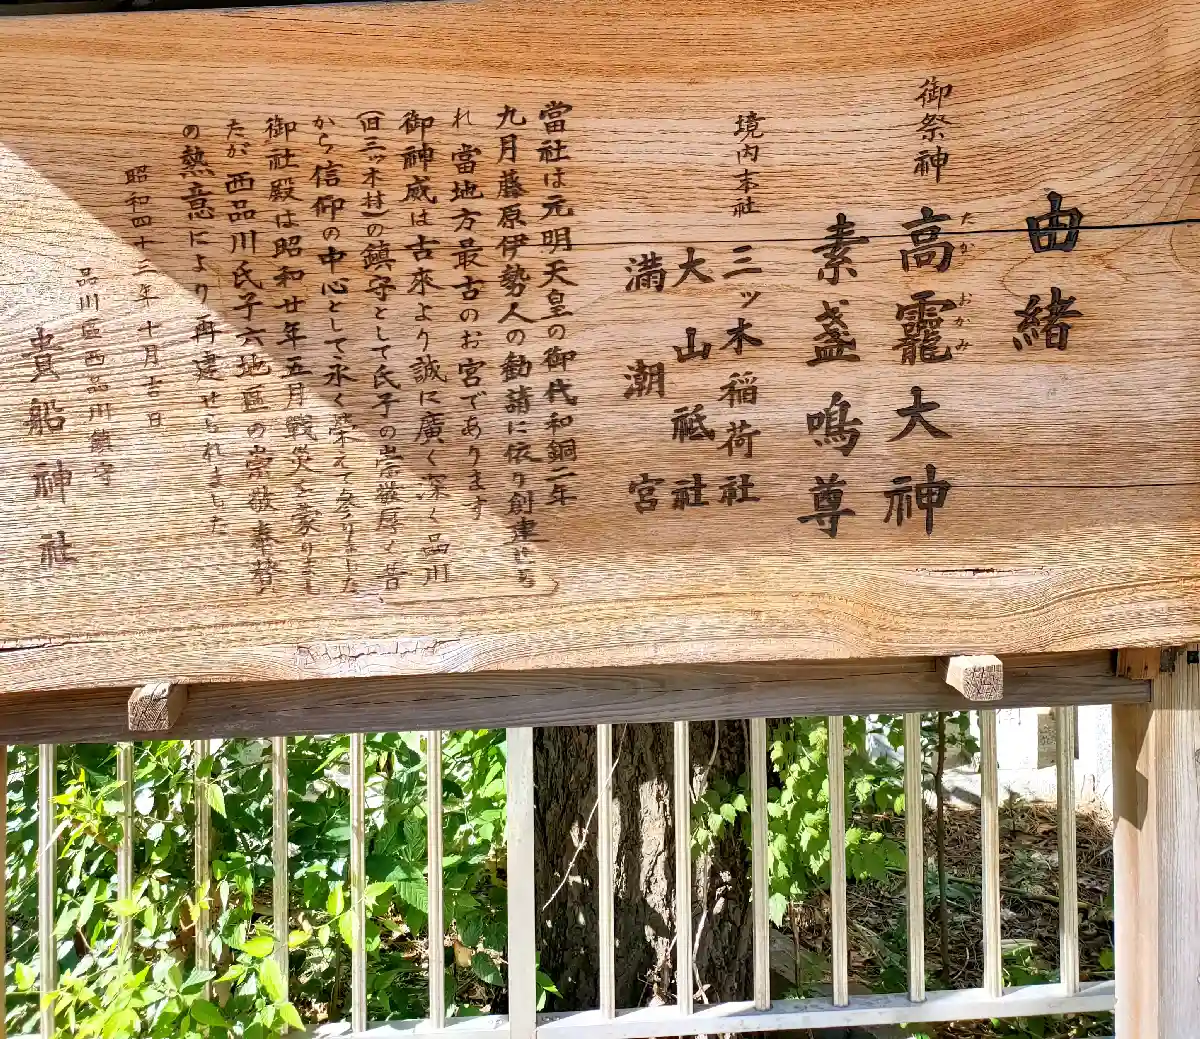 由緒
御祭神
高龗大神
たか おかみ
素盞鳴尊
境内末社
三ッ木稲荷社
大山祗社
満潮宮
當社は元明天皇の御代和銅二年
九月藤原伊勢人の勧請に依り創建せら
れ當地方最古のお宮であります
御神威は古來より誠に廣く深く品川
(旧三ッ木村)の鎮守として氏子の崇敬厚く昔
から信仰の中心として永く榮えて参りました
御社殿は昭和廿年五月戦災を蒙りまし
たが西品川氏子六地區の崇敬奉賛
の熱意により再建せられました
昭和四十三年十月吉日
品川區西品川鎮守
貴船神社